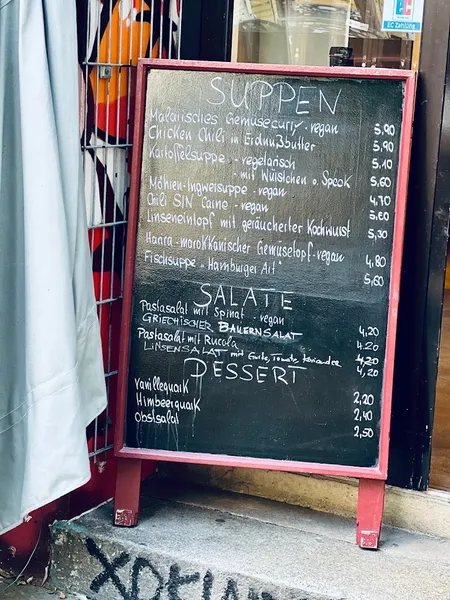 EC Zahlung
SUPPEN
Malaiisches Gemüsecurry - vegan 5,90
Chicken Chili in Erdnußbutter 5,90
Kartoffelsuppe - vegetarisch 5,10
- mit Würstchen o. Speck 5,60
Möhren-Ingwersuppe - vegan 4,70
Chili SIN Carne - vegan 5,60
Linseneintopf mit geräucherter Kochwurst 5,30
Harira - marokkanischer Gemüsetopf - vegan 4,80
Fischsuppe "Hamburger Art" 5,60
SALATE
Pastasalat mit Spinat - vegan 4,20
GRIECHISCHER BAUERNSALAT 4,20
Pastasalat mit Rucola 4,20
LINSENSALAT mit Gurke, Tomate, Koriander 4,20
DESSERT
Vanillequark 2,20
Himbeerquark 2,40
Obstsalat 2,50